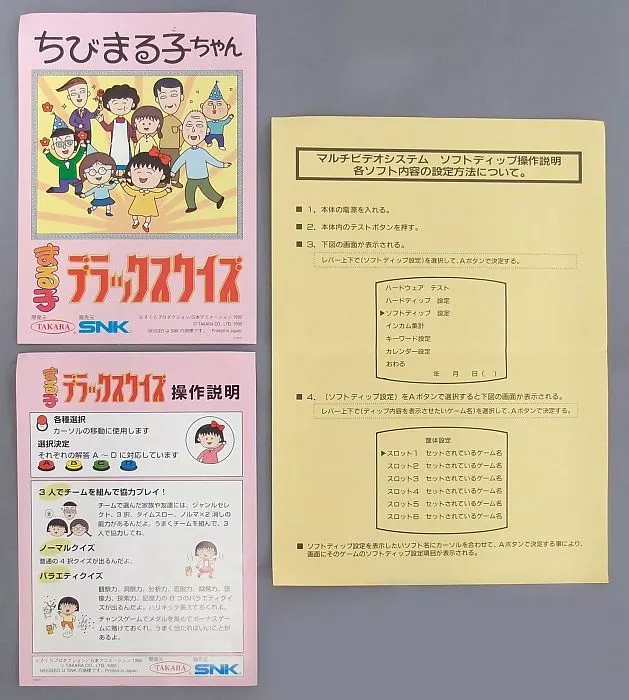 ちびまる子ちゃん
まる子
デラックスクイズ
開発元
TAKARA
販売元
SNK
©さくらプロダクション/日本アニメーション 1995
©TAKARA CO., LTD. 1995
NEOGEO は SNK の商標です。 Printed in Japan
まる子 デラックスクイズ 操作説明
各種選択
カーソルの移動に使用します
選択決定
それぞれの解答 A ～ D に対応しています
A B C D
3人でチームを組んで協力プレイ！
チームで選んだ家族や友達には、ジャンルセレ
クト、3択、タイムスロー、ノルマ×2 消しの
能力があるんだよ。うまくチームを組んで、3
人で協力してね。
ノーマルクイズ
普通の4択クイズが出るんだよ。
バラエティクイズ
観察力、洞察力、分析力、忍耐力、瞬発力、想
像力、技術力、記憶力の8つのバラエティクイ
ズが出るんだよ。ハリキッテ答えておくれよ。
チャンスゲームでメダルを集めてボーナスゲー
ムに賭けておくれ。うまく当たればいいことが
あるよ。
©さくらプロダクション/日本アニメーション 1995
©TAKARA CO., LTD. 1995
NEOGEO は SNK の商標です。 Printed in Japan
開発元
TAKARA
販売元
SNK
マルチビデオシステム　ソフトディップ操作説明
各ソフト内容の設定方法について。
■ 1、本体の電源を入れる。
■ 2、本体内のテストボタンを押す。
■ 3、下図の画面が表示される。
レバー上下で(ソフトディップ設定)を選択して、Aボタンで決定する。
ハードウェア　テスト
ハードディップ　設定
▶ソフトディップ　設定
インカム集計
キーワード設定
カレンダー設定
おわる
年　月　日(　)
■ 4、(ソフトディップ設定)をAボタンで選択すると下図の画面が表示される。
レバー上下で(ディップ内容を表示させたいゲーム名)を選択して、Aボタンで決定する。
筐体設定
▶スロット1　セットされているゲーム名
スロット2　セットされているゲーム名
スロット3　セットされているゲーム名
スロット4　セットされているゲーム名
スロット5　セットされているゲーム名
スロット6　セットされているゲーム名
■ ソフトディップ設定を表示したいソフト名にカーソルを合わせて、Aボタンで決定する事により、
画面にそのゲームのソフトディップ設定項目が表示される。